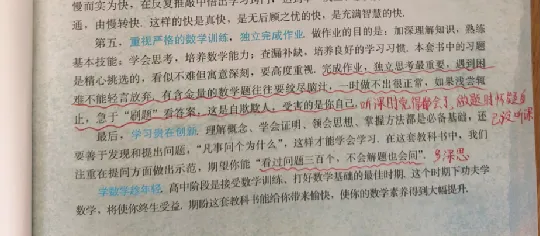 慢而实为快，在反复推敲中悟出学习窍门，
通，由慢转快. 这样的快是真快，是无后顾之忧的快，是充满智慧的快.
第五，重视严格的数学训练，独立完成作业. 做作业的目的是：加深理解知识，熟练
基本技能；学会思考，培养数学能力；查漏补缺，培养良好的学习习惯. 本套书中的习题
是精心挑选的，看似不难但寓意深刻，要高度重视. 完成作业，独立思考最重要，遇到困
难不能轻言放弃. 有含金量的数学题往往要绞尽脑汁，一时做不出很正常，如果浅尝辄
止，急于“刷题”看答案，这是自欺欺人，受害的是你自己. 听课时觉得都会了，做题时怀疑自
己没听课
最后，学习贵在创新. 理解概念、学会证明、领会思想、掌握方法都是必备基础，还
要善于发现和提出问题，“凡事问个为什么”，这样才能学会学习. 在这套教科书中，我们
注重在提问方面做出示范，期望你能“看过问题三百个，不会解题也会问”. 多深思
学数学趁年轻. 高中阶段是接受数学训练、打好数学基础的最佳时期. 这个时期下功夫学
数学，将使你终生受益. 期盼这套教科书能给你带来愉快，使你的数学素养得到大幅提升.